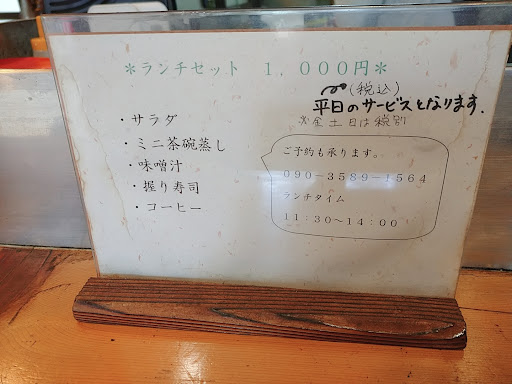 ＊ランチセット　１，０００円＊
(税込)
平日のサービスとなります.
※金土日は税別
・サラダ
・ミニ茶碗蒸し
・味噌汁
・握り寿司
・コーヒー
ご予約も承ります。
０９０－３５８９－１５６４
ランチタイム
１１：３０～１４：００